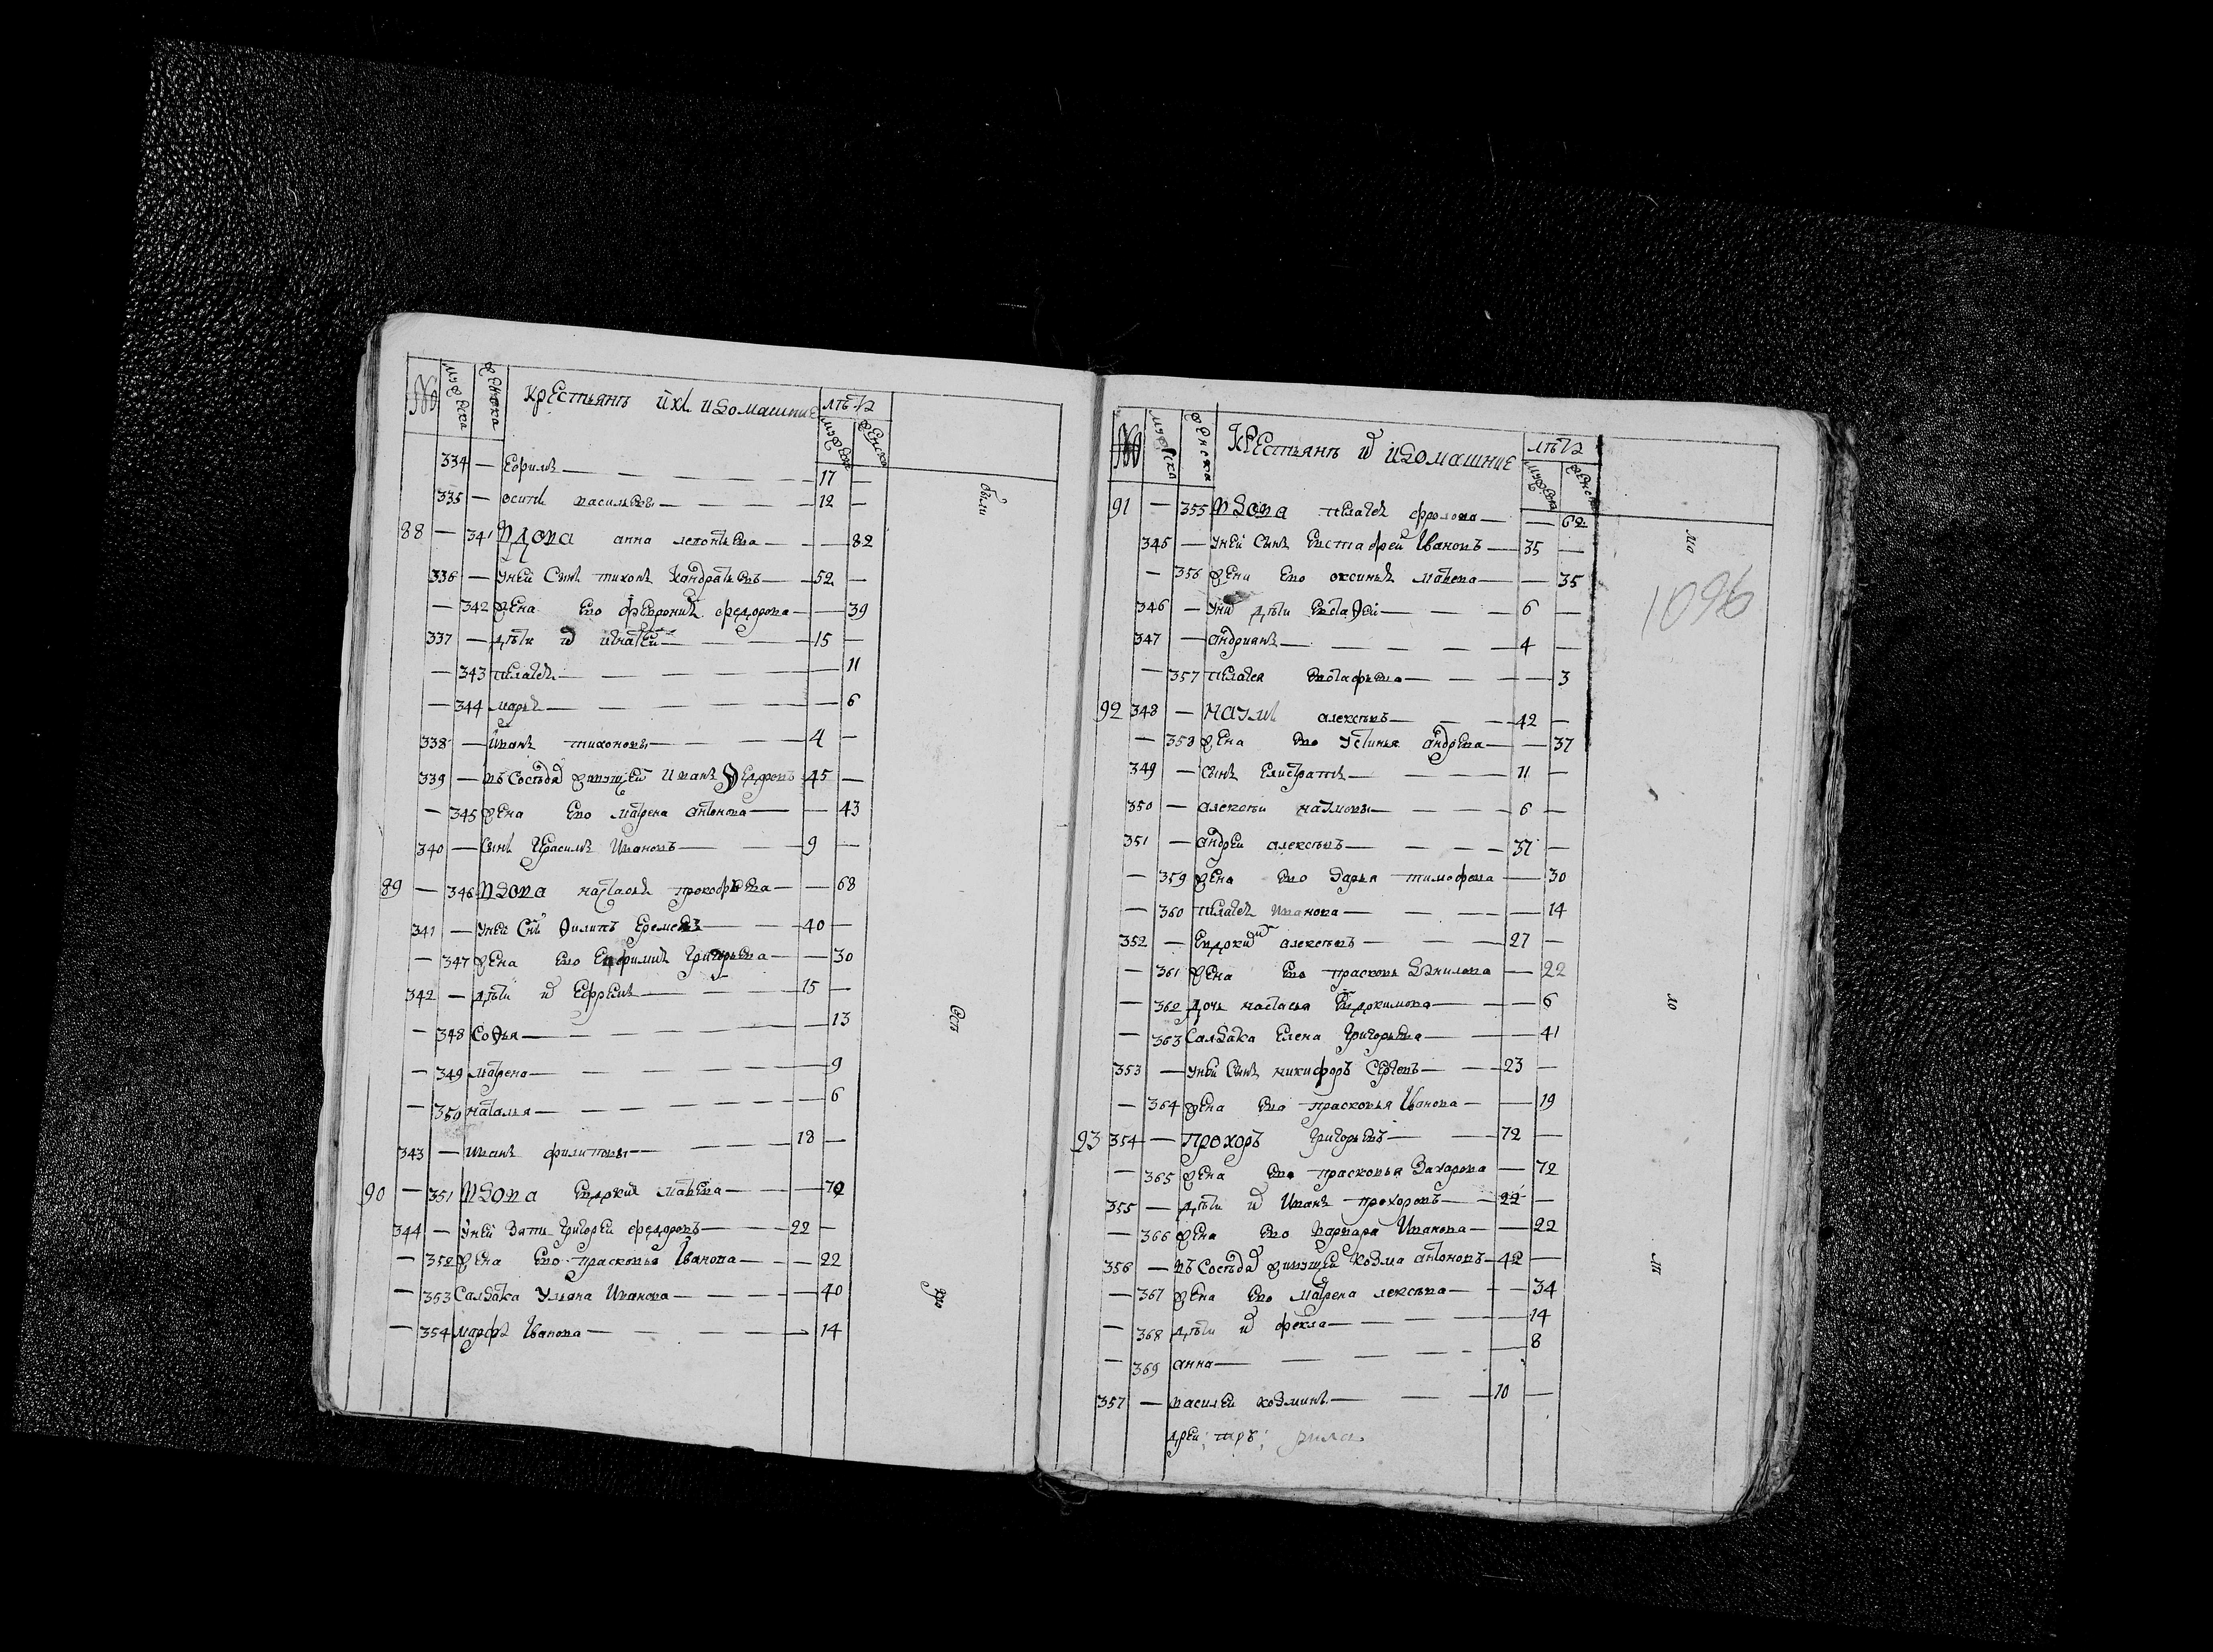 № мужеска женска Крестьянъ ихъ и домашние лѣта мужеска женска
334 — Ефимъ — 17 —
335 — осипъ васильевы — 12 —
были
88 — 341 вдова анна леонтьева — — 82
336 — у ней сынъ тихонъ кандратьевъ — 52 —
— 342 жена ево феврониѣ федорова — — 39
337 — дѣти их игнатей — 15 —
— 343 пелагея — — 11
— 344 марья — — 6
338 — иванъ тихоновы — 4 —
339 — въ соседах живущей иванъ Ѳедоровъ 45 —
— 345 жена ево матрена антонова — — 43
340 — сынъ Герасимъ Ивановъ — 9 —
89 — 346 вдова настасья прокофьева — — 68
341 — у ней снъ Ѳилипъ Еремеевъ — 40 —
— 347 жена ево Евфимия Григорьева — — 30
342 — дѣти их Ефремъ — 15 —
— 348 Соѳья — — 13
— 349 матрена — — 9
— 350 наталья — — 6
343 — иванъ филиповы — 18 —
90 — 351 вдова Евдокия матвева — — 70
344 — у ней зять Григорей федоровъ — 22 —
— 352 жена ево прасковья Иванова — — 22
— 353 Салдатка Ульяна Иванова — — 40
— 354 марфа Иванова — — 14
№ мужеска женска Крестьянъ и домашние лѣта мужеска женска
91 — 355 вдова пелагея фролова — — 62
345 — у ней сынъ Евстафей Ивановъ — 35 —
— 356 жена ево оксинья матвева — — 35
346 — у них дѣти Евстаѳей — 6 —
347 — андрианъ — 4 —
— 357 пелагея Евстафьевы — — 3
1096
92 348 — наумъ алексѣевъ — 42 —
— 358 жена ево Устинья андрева — — 37
349 — сынъ Елистратъ — 11 —
350 — алексѣй наумовы — 6 —
351 — андрей алексѣевъ — 37 —
— 359 жена ево дарья тимофева — 30
— 360 пелагея Иванова — — 14
352 — Евдоким алексѣевъ — 27 —
— 361 жена ево прасковья данилова — 22
— 362 дочь настасья Евдокимова — — 6
— 363 Салдатка Елена Григорьева — — 41
353 — у ней сынъ никифоръ Сергеевъ — 23 —
— 364 жена ево прасковья Иванова — — 19
93 354 — Прохоръ Григорьевъ — 72 —
— 365 жена ево прасковья Захарова — 72
355 — дѣти их Иванъ прохоровъ — 22 —
— 366 жена ево варвара Иванова — — 22
356 — въ соседах живущей козма антоновъ — 42 —
— 367 жена ево матрена лексѣева — — 34
— 368 дѣти их фекла — — 14
— 369 анна — — 8
357 — василей козминъ — 10 —